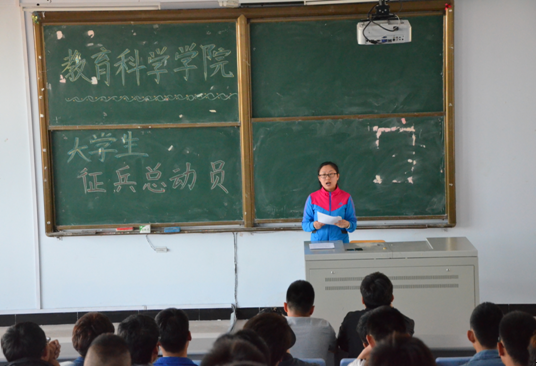 教育科学学院
大学生
征兵总动员